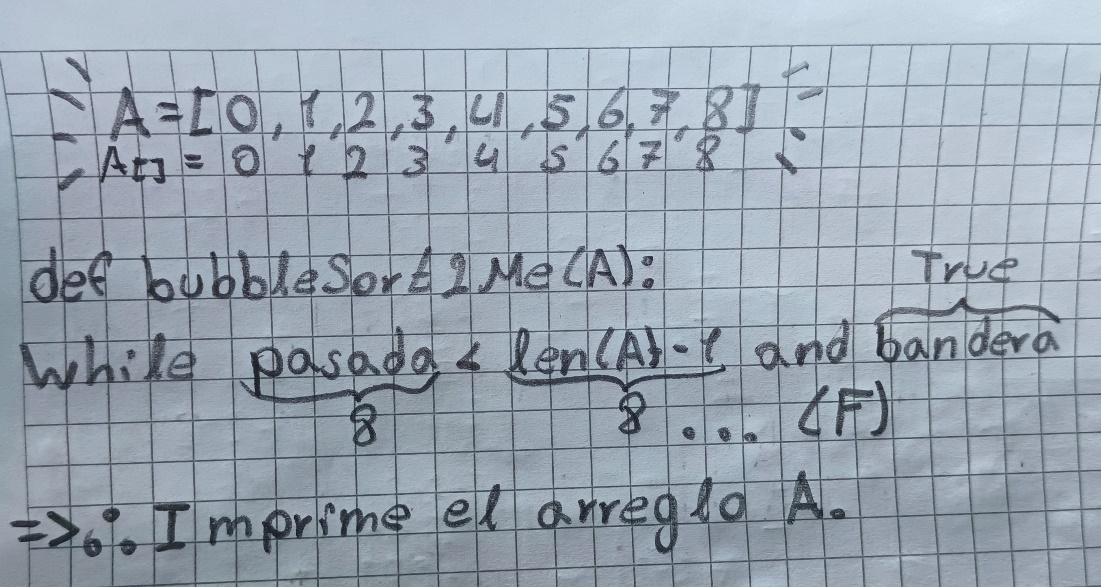 A=[0,1,2,3,4,5,6,7,8]
A[]= 0 1 2 3 4 5 6 7 8
def bubbleSort2Me(A):
True
While pasada < len(A)-1 and bandera
8 8 ... (F)
=> ∴ Imprime el arreglo A.